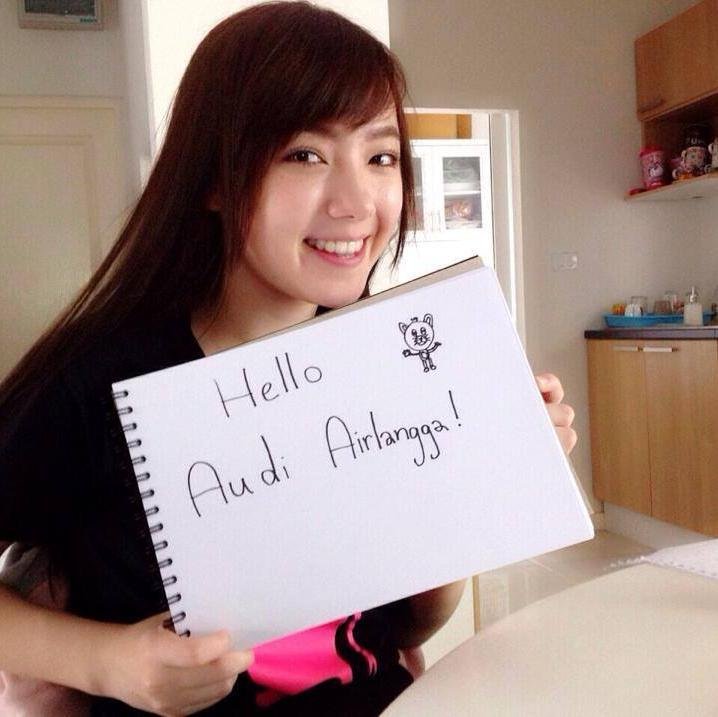 Hello
Audi Airlangga!